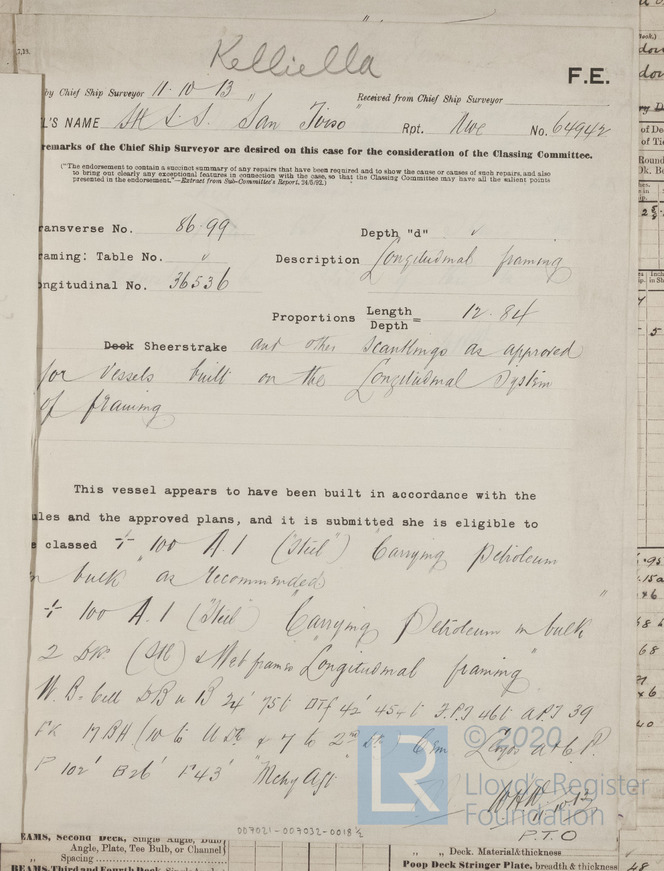 Kelliella
F.E.
by Chief Ship Surveyor 11.10.13 Received from Chief Ship Surveyor
L'S NAME S.S. "San Tirso" Rpt. Nwc No. 64942
remarks of the Chief Ship Surveyor are desired on this case for the consideration of the Classing Committee.
("The endorsement to contain a succinct summary of any repairs that have been required and to show the cause or causes of such repairs, and also
to bring out clearly any exceptional features in connection with the case, so that the Classing Committee may have all the salient points
presented in the endorsement."—Extract from Sub-Committee's Report, 24/5/92.)
ransverse No. 86.99 Depth "d" ✓
raming: Table No. ✓ Description Longitudinal framing
ongitudinal No. 36536
Proportions Length / Depth = 12.84
Deck Sheerstrake and other scantlings as approved
for vessels built on the Longitudinal System
of framing
This vessel appears to have been built in accordance with the
ules and the approved plans, and it is submitted she is eligible to
e classed + 100 A.1 (Steel) "Carrying Petroleum
in bulk" as recommended
+ 100 A.1 (Steel) "Carrying Petroleum in bulk"
2 Dks (Stl) & Web frames "Longitudinal framing"
W.B. Cell D B u B 24' 75t 42' 45 t F.P.T 46t A.P.T 39
FK 17 BH (10 to U Dk & 7 to 2nd Dk) Cem
P 102' B 26' F 43' "Mchy Aft"
11.10.13
P.T.O
© 2020
LR
Lloyd's Register
Foundation
007021-007032-0018½
EAMS, Second Deck, Single Angle, Bulb
Angle, Plate, Tee Bulb, or Channel
Spacing
BEAMS, Third and Fourth Deck, Single
" " Deck. Material & thickness
Poop Deck Stringer Plate, breadth & thickness